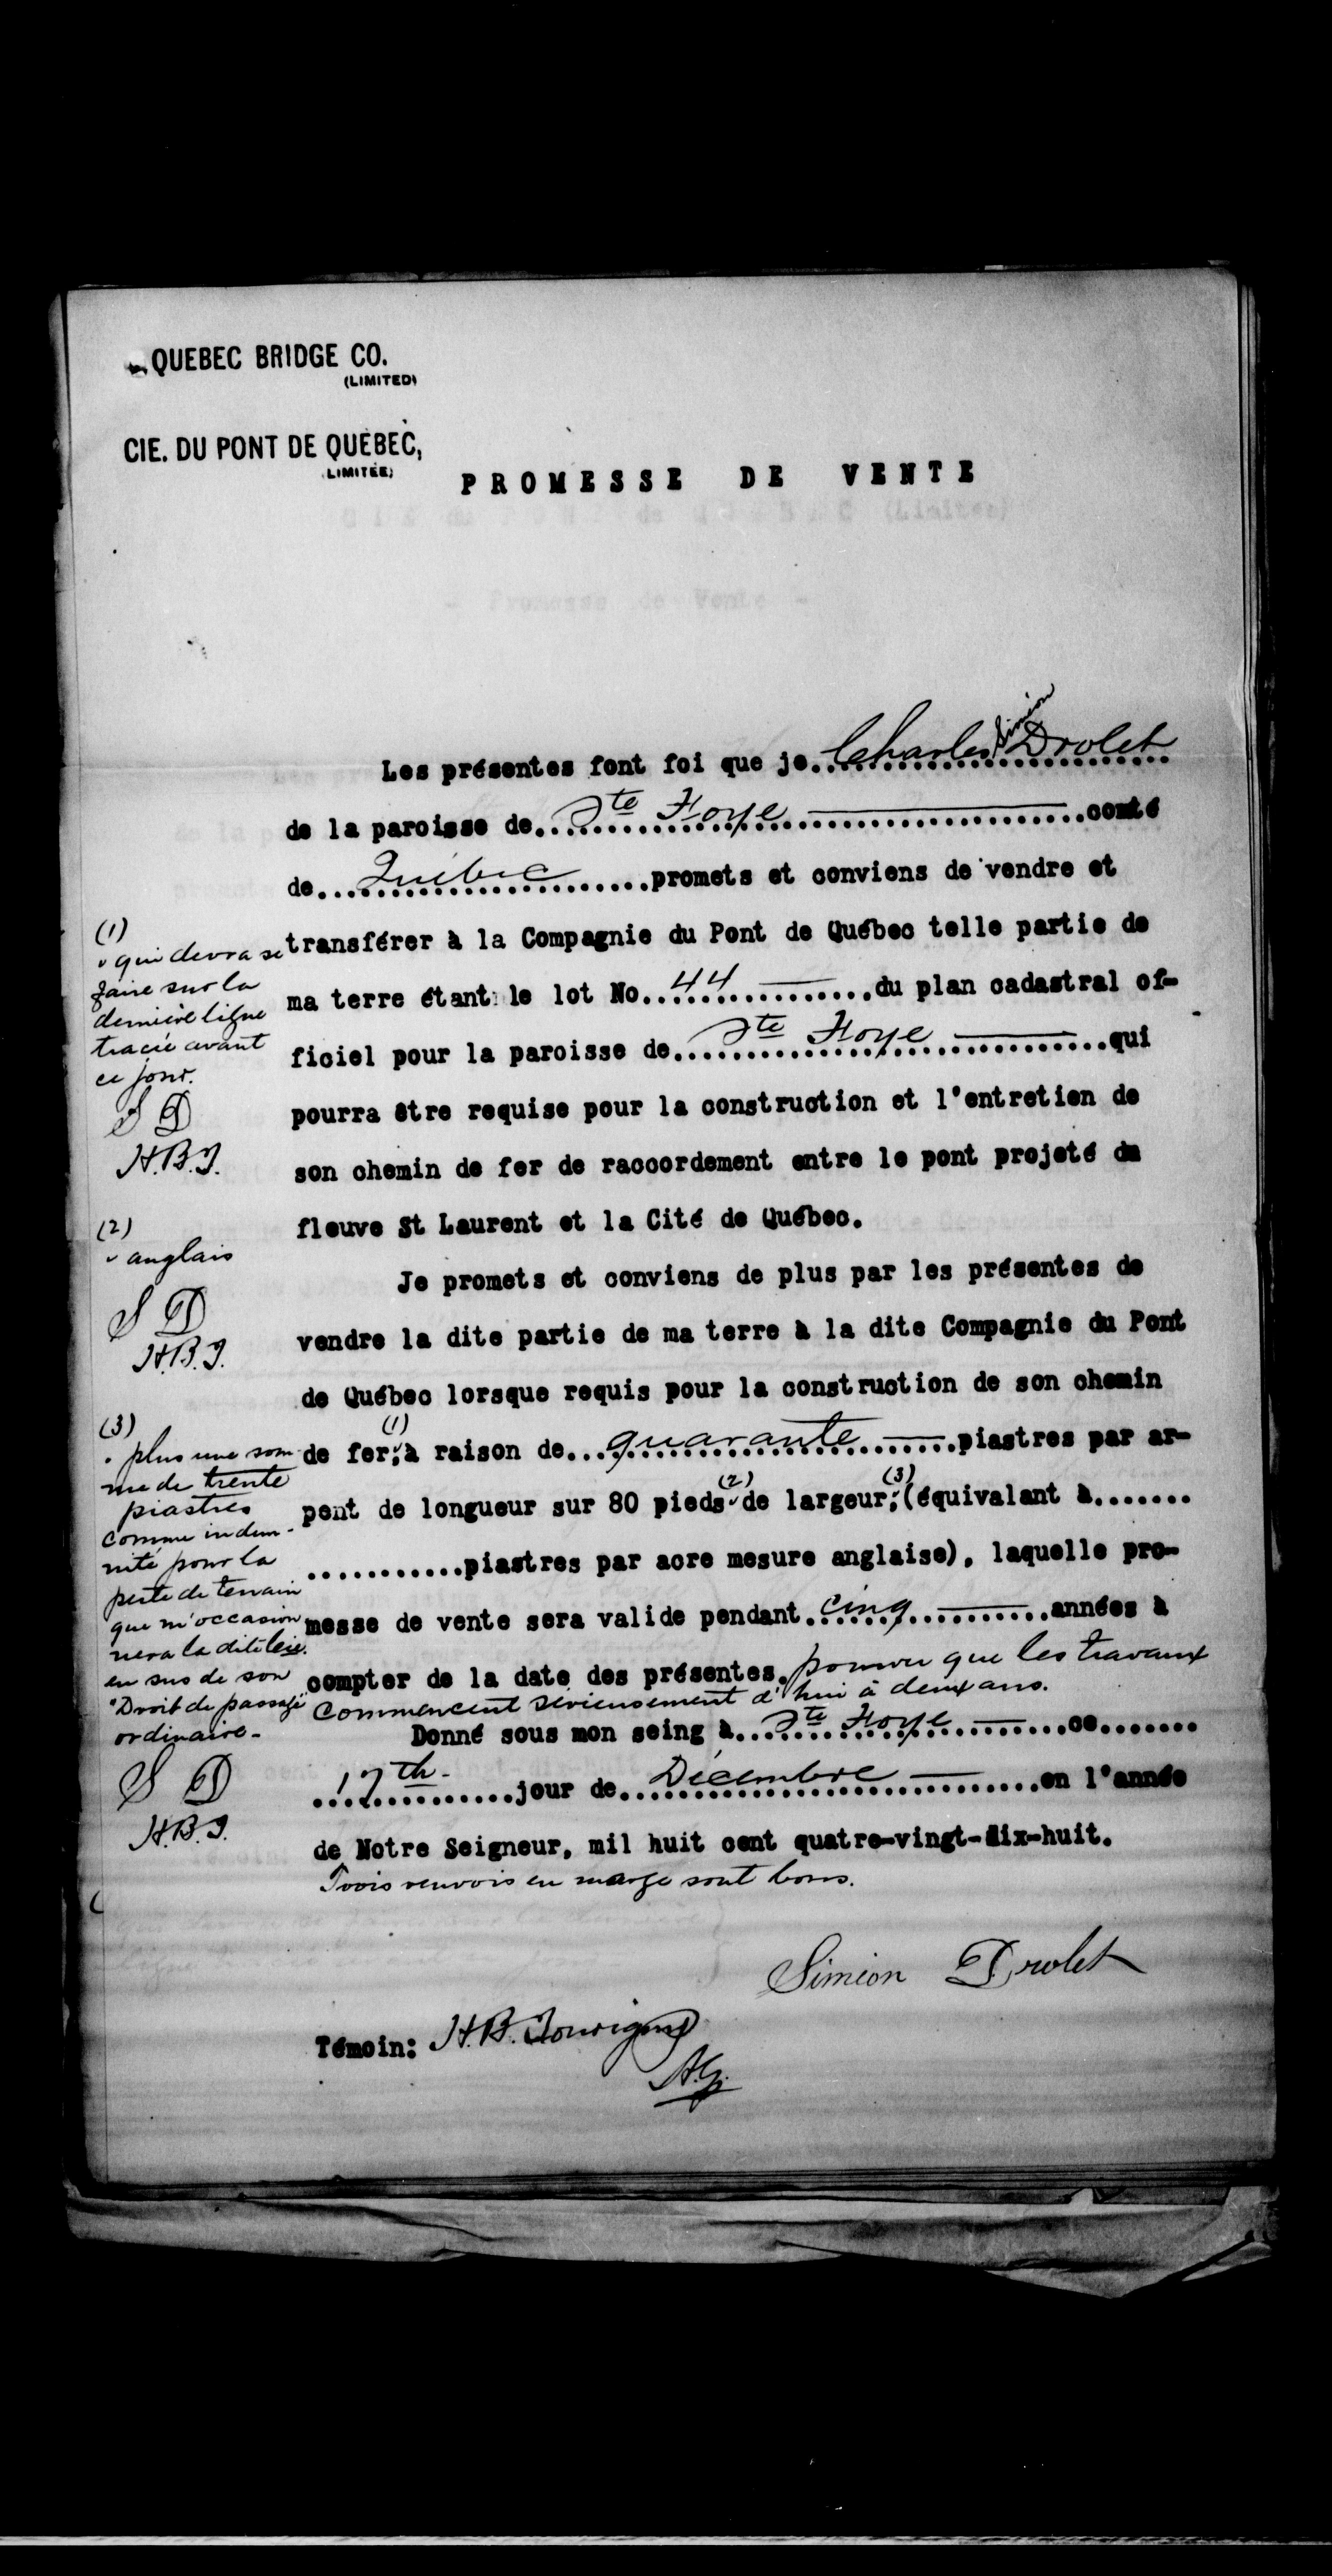 QUEBEC BRIDGE CO.
(LIMITED)
CIE. DU PONT DE QUÉBEC,
(LIMITÉE)
PROMESSE DE VENTE
Les présentes font foi que je..Charles Simion Drolet..
de la paroisse de..Ste Foye..comté
de..Québec..promets et conviens de vendre et
transférer à la Compagnie du Pont de Québec telle partie de
ma terre étant le lot No..44..du plan cadastral of-
ficiel pour la paroisse de..Ste Foye..qui
pourra être requise pour la construction et l'entretien de
son chemin de fer de raccordement entre le pont projeté du
fleuve St Laurent et la Cité de Québec.
Je promets et conviens de plus par les présentes de
vendre la dite partie de ma terre à la dite Compagnie du Pont
de Québec lorsque requis pour la construction de son chemin
de fer, (1) à raison de..quarante..piastres par ar-
pent de longueur sur 80 pieds (2) de largeur, (3) (équivalant à.......
...........piastres par acre mesure anglaise), laquelle pro-
messe de vente sera valide pendant..cinq..années à
compter de la date des présentes. pourvu que les travaux
commencent sérieusement d'hui à deux ans.
Donné sous mon seing à..Ste Foye..ce.......
..17th..jour de..Décembre..en l'année
de Notre Seigneur, mil huit cent quatre-vingt-dix-huit.
Trois renvois en marge sont bons.
Simion Drolet
Témoin: H.B.
(1)
qui devra se
faire sur la
dernière ligne
tracée avant
ce jour.
S D
H.B.J.
(2)
anglais
S D
H.B.J.
(3)
plus une som-
me de trente
piastres
comme indem-
nité pour la
perte de terrain
que m'occasion
nera la dite Cie.
en sus de son
"Droit de passage"
ordinaire-
S D
H.B.J.